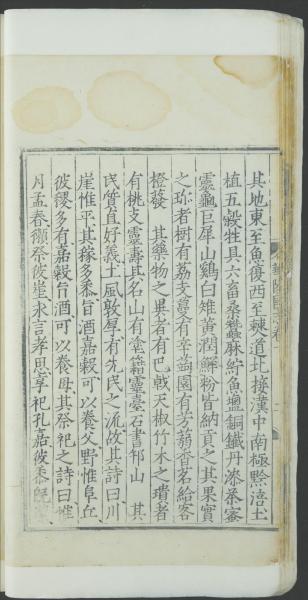 其地東至魚復西至僰道北接漢中南極黔涪土
植五穀牲具六畜桑蠶麻紵魚鹽銅鐵丹漆茶蜜
靈龜巨犀山鷄白雉黃潤鮮粉皆納貢之其果實
之珍者樹有荔支蔓有辛蒟園有芳蒻香茗給客
橙葵 其藥物之異者有巴戟天椒竹木之璝者
有桃支靈壽其名山有塗籍靈臺石書刊山 其
民質直好義土風敦厚有先民之流故其詩曰川
崖惟平其稼多黍旨酒嘉穀可以養父野惟阜丘
彼稷多有嘉穀旨酒可以養母其祭祀之詩曰惟
月孟春獺祭彼崖永言孝思享祀孔嘉彼黍
華陽國志卷一